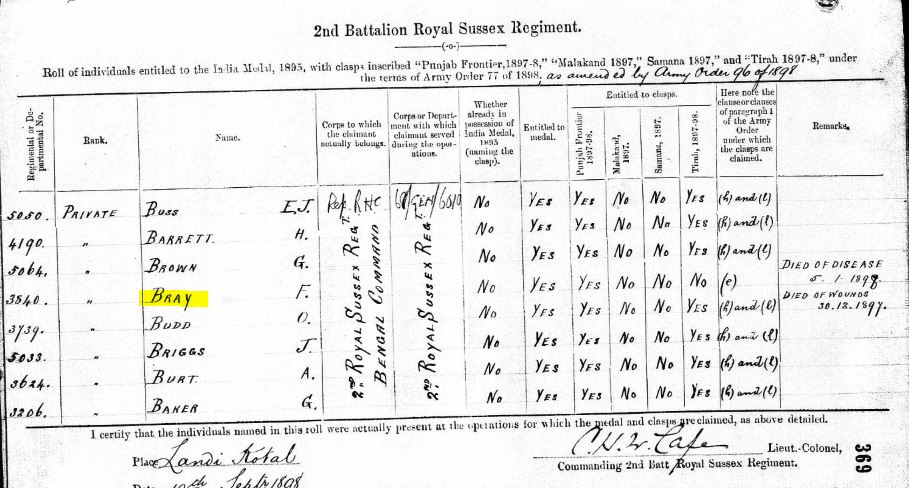 2nd Battalion Royal Sussex Regiment.
(-o-)
Roll of individuals entitled to the India Medal, 1895, with clasps inscribed "Punjab Frontier, 1897-8," "Malakand 1897," Samana 1897," and "Tirah 1897-8," under
the terms of Army Order 77 of 1898, as amended by Army Order 96 of 1898
Regimental or Departmental No.
Rank.
Name.
Corps to which
the claimant
actually belongs.
Corps or Depart-
ment with which
claimant served
during the oper-
ations.
Whether
already in
possession of
India Medal,
1895
(naming the
clasp).
Entitled to
medal.
Entitled to clasps.
Punjab Frontier
1897-98.
Malakand,
1897.
Samana, 1897.
Tirah, 1897-98.
Here note the
clause or clauses
of paragraph 1
of the Army
Order
under which
the clasps are
claimed.
Remarks.
5050. PRIVATE BUSS E.J. No YES YES No No YES (h) and (l)
4190. " BARRETT. H. No YES YES No No YES (h) and (l)
5064. " BROWN G. No YES YES No No YES (h) and (l)
3540. " BRAY F. No YES YES No No No (e) DIED OF DISEASE 5.1.1898
3739. " BUDD O. No YES YES No No YES (h) and (l) DIED OF WOUNDS 30.12.1897.
5033. " BRIGGS J. No YES YES No No YES (h) and (l)
3624. " BURT. A. No YES YES No No YES (h) and (l)
3206. " BAKER G. No YES YES No No YES (h) and (l)
2ND ROYAL SUSSEX REGT.
BENGAL COMMAND
2ND ROYAL SUSSEX REGT.
I certify that the individuals named in this roll were actually present at the operations for which the medal and clasps are claimed, as above detailed.
Place Landi Kotal
Lieut.-Colonel,
Commanding 2nd Batt. Royal Sussex Regiment.
Sept 1898
369